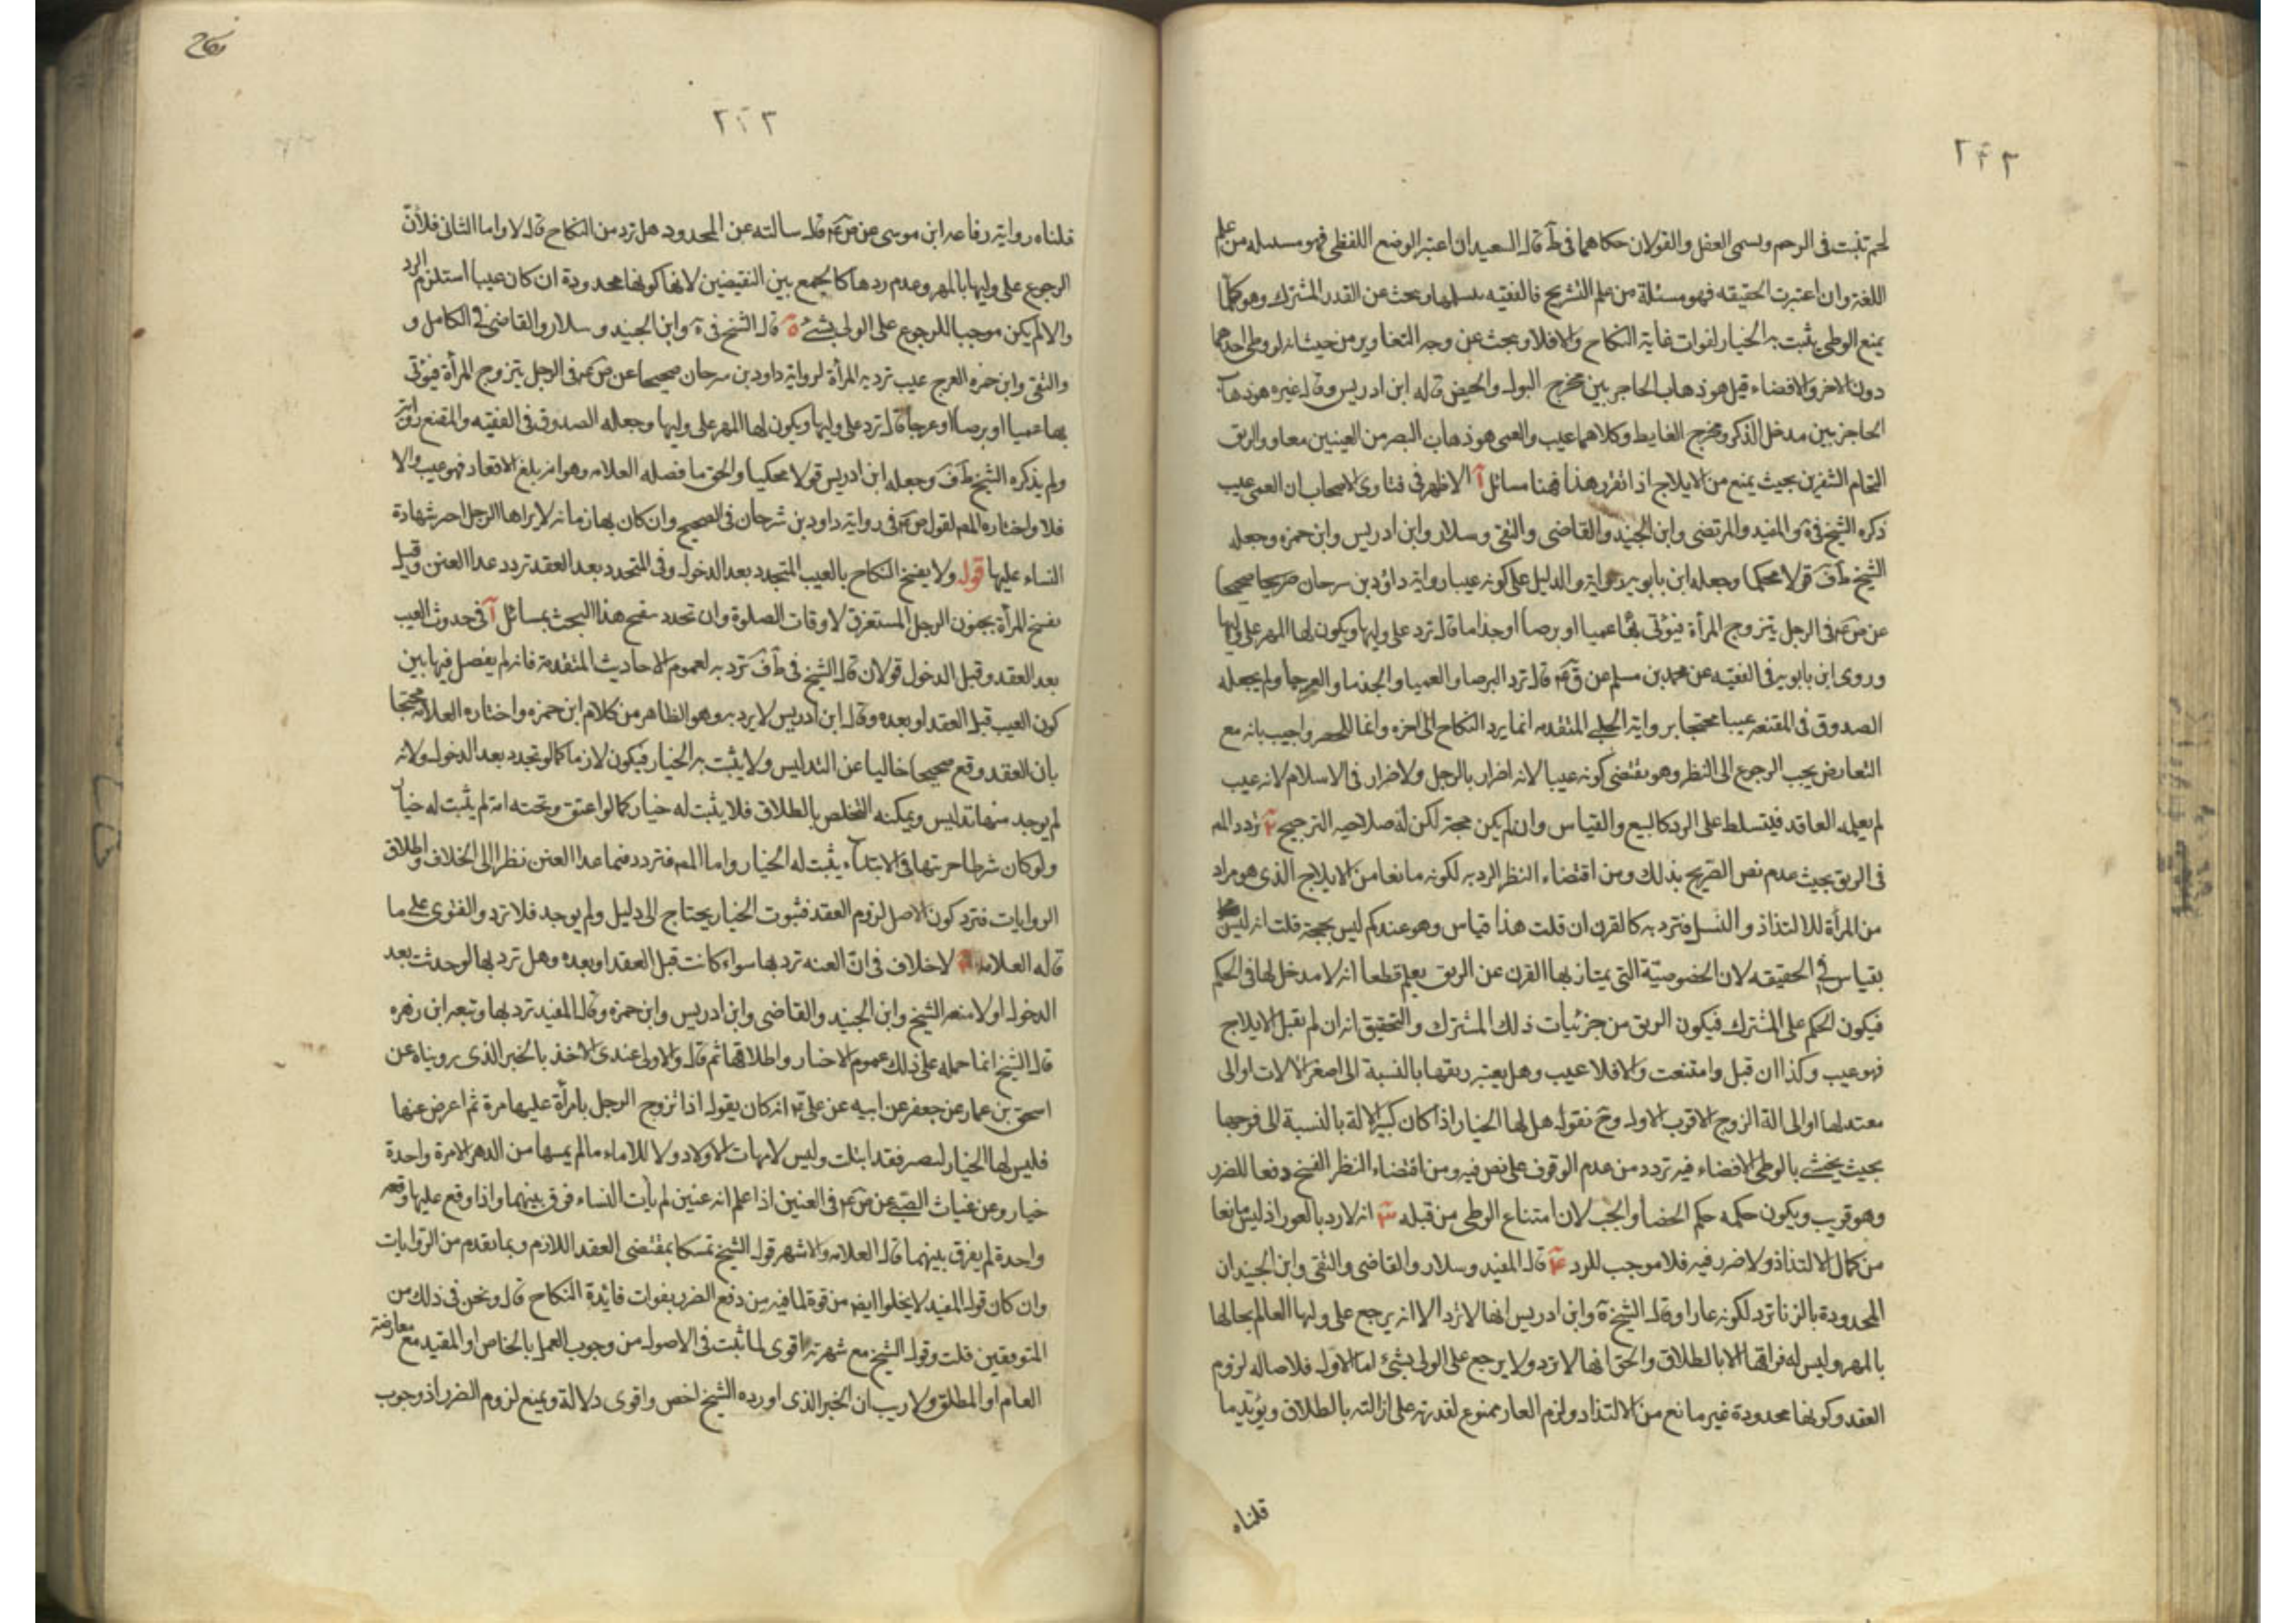 ٢٢٢
لحم تنبت فى الرحم ويسمى العفل والقولان حكاهما فى ط قال السعيد ان اعتبر الوضع اللفظى فهو مسئله من علم
اللغة وان اعتبرت الحقيقه فهو مسئلة من علم التشريح فالفقيه يتسلمها ويبحث عن القدر المشترك وهو كلما
يمنع الوطى يثبت به الخيار لفوات غاية النكاح والا فلا ويبحث عن وجه التغاير من حيث انه لو وطى احدهما
دون الاخر والافضاء قيل هو ذهاب الحاجر بين مخرج البول والحيض قاله ابن ادريس وقال غيره هو ذهاب
الحاجز بين مدخل الذكر ومخرج الغايط وكلاهما عيب والعمى هو ذهاب البصر من العينين معا والرتق
التحام الشفرين بحيث يمنع من الايلاج اذا تقرر هذا فهنا مسائل آ الاظهر فى فتاوى الاصحاب ان العمى عيب
ذكره الشيخ فى ية والمفيد والمرتضى وابن الجنيد والقاضى والتقى وسلار وابن ادريس وابن حمزه وجعله
الشيخ ط ف قولا محكيا وجعله ابن بابويه رواية والدليل على كونه عيبا رواية داؤد بن سرحان صريحا صحيحا
عن ص ع م فى الرجل يتزوج المرأة فيؤتى بها عميا او برصا او جذاما قال ترد على وليها ويكون لها المهر على وليها
وروى ابن بابويه فى الفقيه عن محمد بن مسلم عن ق ع م قال ترد البرصا والعميا والجذما والعرجا ولم يجعله
الصدوق فى المقنعه عيبا محتجا برواية الحلبى المتقدمه انما يرد النكاح الى اخره وانما للحصر واجيب بانه مع
التعارض يجب الرجوع الى النظر وهو يقتضى كونه عيبا لانه اضرار بالرجل ولا ضرار فى الاسلام لانه عيب
لم يعلمه العاقد فيتسلط على الرد كالبيع والقياس وان لم يكن حجة لكن له صلاحيه الترجيح ٢ تردد المص
فى الرتق بحيث عدم نص الصريح بذلك ومن اقتضاء النظر الرد به لكونه مانعا من الايلاج الذى هو مراد
من المرأة للالتذاذ و النسل فترد به كالقرن ان قلت هذا قياس وهو عندكم ليس بحجة قلت انه ليس
بقياس فى الحقيقه لان الخصوصيّة التى يمتاز بها القرن عن الرتق يعلم قطعا انه لا مدخل لها فى الحكم
فيكون الحكم على المشترك فيكون الرتق من جزئيات ذلك المشترك والتحقيق انه ان لم يقبل الايلاج
فهو عيب وكذا ان قبل وامتنعت والا فلا عيب وهل يعتبر رتقها بالنسبة الى اصغر الالات او الى
معتدلها او الى الة الزوج الاقرب الاول وح نقول هل لها الخيار اذا كان كبير الالة بالنسبة الى فرجها
بحيث يخشى بالوطى الافضاء فيه تردد من عدم الوقوف على نص فيه ومن اقتضاء النظر الفسخ دفعا للضرر
وهو قريب ويكون حكمه حكم الخصأ والجب لان امتناع الوطى من قبله ٣ انه لا رد بالعور اذ ليس مانعا
من كمال الالتذاذ ولا ضرر فيه فلا موجب للرد ٤ قال المفيد وسلار والقاضى والتقى وابن الجنيد ان
المحدودة بالزنا ترد لكونه عارا وقال الشيخ ية وابن ادريس انها لا ترد الا انه يرجع على وليها العالم بحالها
بالمهر وليس له فراقها الا بالطلاق والحق انها لا ترد ولا يرجع على الولى بشئ اما الاول فلاصاله لزوم
العقد وكونها محدودة غير مانع من الالتذاذ ولزم العار ممنوع لقدرته على ازالته بالطلاق ويؤيد ما
قلناه
نكاح
٢٢٣
قلناه رواية رفاعه ابن موسى عن ص ع م قال سالته عن المحدود هل ترد من النكاح قال لا واما الثانى فلأن
الرجوع على وليها بالمهر وعدم ردها كالجمع بين النقيضين لانها كونها محدودة ان كان عيبا استلزم الرد
والا لم يكن موجبا للرجوع على الولى بشئ ٥ قال الشيخ فى ية وابن الجنيد و سلار والقاضى فى الكامل و
والتقى وابن حمزه العرج عيب ترد به المرأة لرواية داود بن سرحان صحيحا عن ص ع م فى الرجل يتزوج المرأة فيؤتى
بها عميا او برصا او عرجا قال ترد على وليها ويكون لها المهر على وليها وجعله الصدوق فى الفقيه والمقنع رواية
ولم يذكره الشيخ ط ف وجعله ابن ادريس قولا محكيا والحق ما فصله العلامه وهو انه بلغ الاقعاد فهو عيب والا
فلا واختاره المص لقول ص ع م فى رواية داود بن شرحان فى الصحيح وان كان بها زمانه لا يراها الرجل اجز شهادة
النساء عليها قوله ولا يفسخ النكاح بالعيب المتجدد بعد الدخول وفى المتجدد بعد العقد تردد عدا العنن وقيل
تفسخ المرأة بجنون الرجل المستغرق لاوقات الصلوة وان تجدد ينقح هذا البحث بمسائل آ فى حدوث العيب
بعد العقد وقبل الدخول قولان قال الشيخ فى ط ف ترد به لعموم الاحاديث المتقدمة فانه لم يفصل فيها بين
كون العيب قبل العقد او بعده وقال ابن ادريس لا يرد به وهو الظاهر من كلام ابن حمزه واختاره العلامه محتجا
بان العقد وقع صحيحا خاليا عن التدليس ولا يثبت به الخيار فيكون لازما كما لو تجدد بعد الدخول ولانه
لم يوجد منها تدليس ويمكنه التخلص بالطلاق فلا يثبت له خيار كما لو اعتق وتحته امة لم يثبت له خيار
ولو كان شرطا حريتها فى الابتداء يثبت له الخيار واما المص فتردد فيما عدا العنن نظرا الى الخلاف واطلاق
الروايات فترد كون الاصل لزوم العقد فثبوت الخيار يحتاج الى دليل ولم يوجد فلا ترد والفتوى على ما
قاله العلامه ٢ لا خلاف فى انّ العنه ترد بها سواء كانت قبل العقد او بعده وهل ترد بها لو حدثت بعد
الدخول او لا منعه الشيخ وابن الجنيد والقاضى وابن ادريس وابن حمزة وقال المفيد ترد بها وتبعه ابن زهره
قال الشيخ انما حمله على ذلك عموم الاخبار واطلاقها ثم قال والاولى عندى الاخذ بالخبر الذى رويناه عن
اسحق بن عمار عن جعفر عن ابيه عن على ع م انه كان يقول اذا تزوج الرجل بامرأة عليها مرة ثم اعرض عنها
فليس لها الخيار لتصبر فقد ابتلت وليس لامهات الاولاد ولا للاماء مالم يمسها من الدهر الا مرة واحدة
خيار وعن غياث الضبى عن ص ع م فى العنين اذا علم انه عنين لم يأت النساء فرق بينهما واذا وقع عليها وقعه
واحدة لم يفرق بينهما قال العلامه والاشهر قول الشيخ تمسكا بمقتضى العقد اللازم وبما تقدم من الروايات
وان كان قول المفيد لا يخلوا ايضا من قوة لما فيه من دفع الضرر بفوات فائدة النكاح قال ونحن فى ذلك من
المتوقفين قلت وقول الشيخ مع شهرته اقوى لما ثبت فى الاصول من وجوب العمل بالخاص او المقيد مع معارضة
العام او المطلق ولا ريب ان الخبر الذى اورده الشيخ اخص واقوى دلالة ويمنع لزوم الضرر اذ وجوب